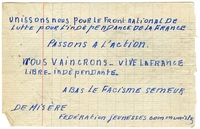 unissons nous pour le front national de
lutte pour l'indépendance de la france
Passons a l'action.
nous vaincrons - vive la france
libre indépendante
a bas le facisme semeur
de misère
Federation jeunesses communiste